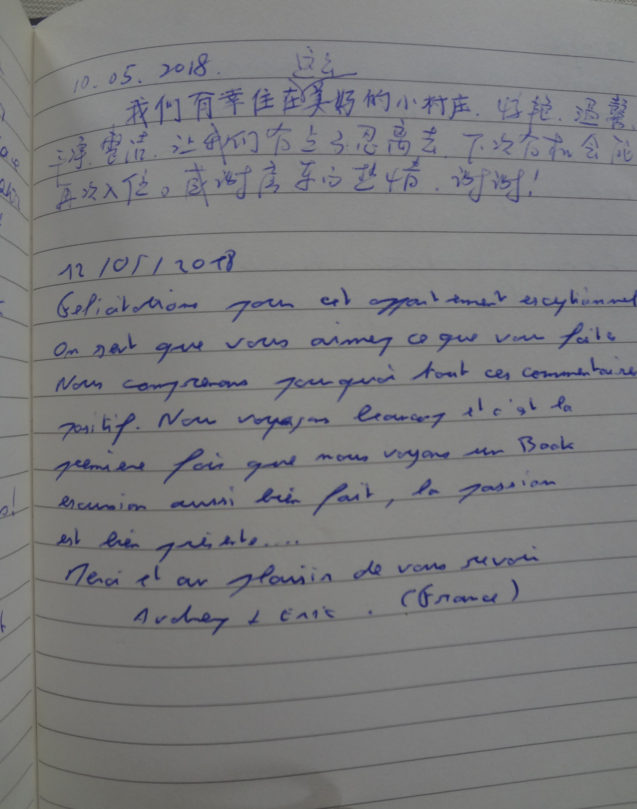 10.05.2018.
这么
我们有幸住在美好的小村庄. 好艳. 温馨,
整洁. 让我们有点不忍离去. 下次有机会
再次入住。感谢房东的热情. 谢谢!
12/05/2018
Felicitations pour cet appartement exceptionnel
On sent que vous aimez ce que vous faite
Nous comprenons pourquoi tout ces commentaire
positif. Nous voyageons beaucoup et c'est la
première fois que nous voyons un Book
excursion aussi bien fait, la passion
est bien présente....
Merci et au plaisir de vous revoir
Audrey & Eric. (France)